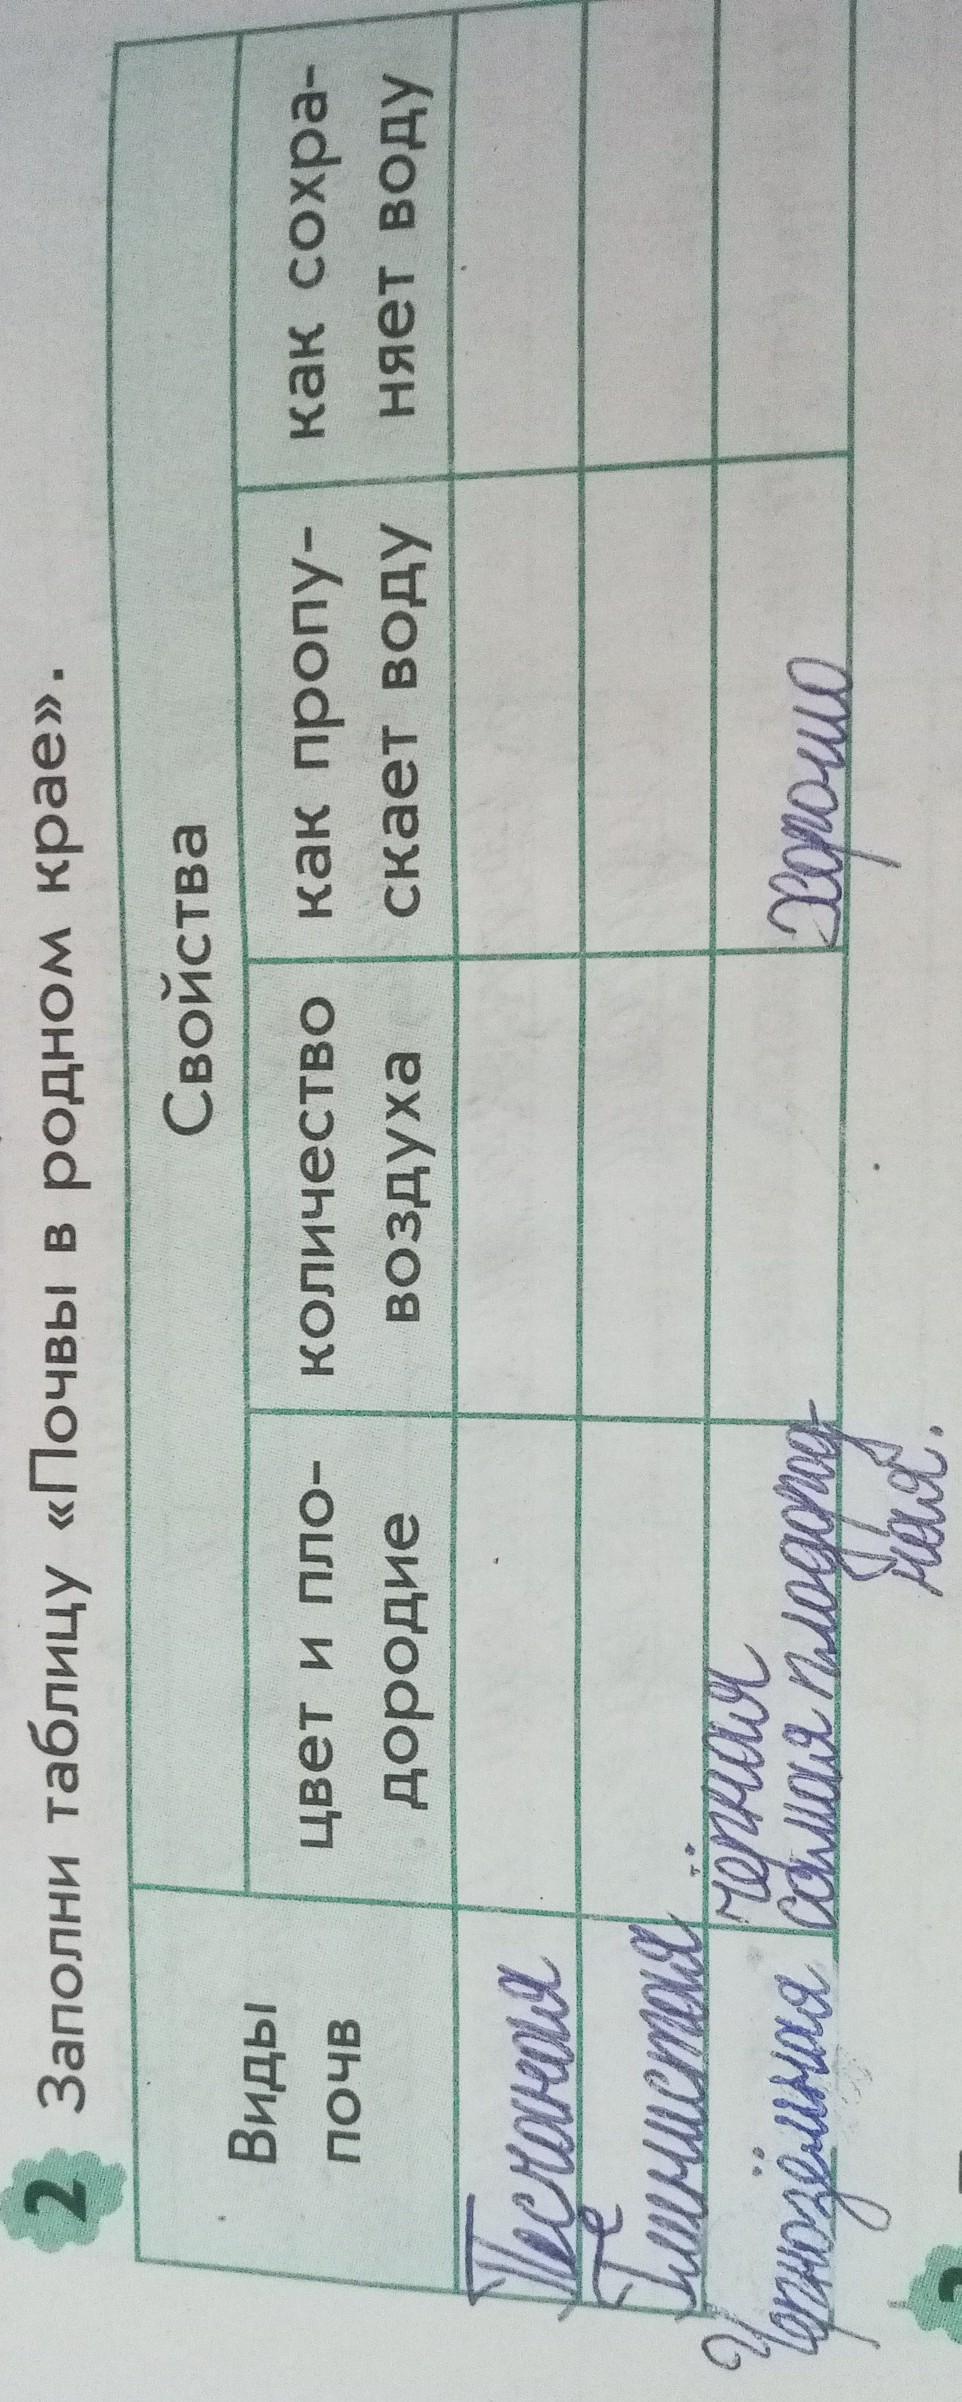 2 Заполни таблицу «Почвы в родном крае».
Виды
почв
Свойства
цвет и пло-
дородие
количество
воздуха
как пропу-
скает воду
как сохра-
няет воду
Песчаная
Глинистая
Чернозёмная
чёрная
самая плодород-
ная.
хорошо